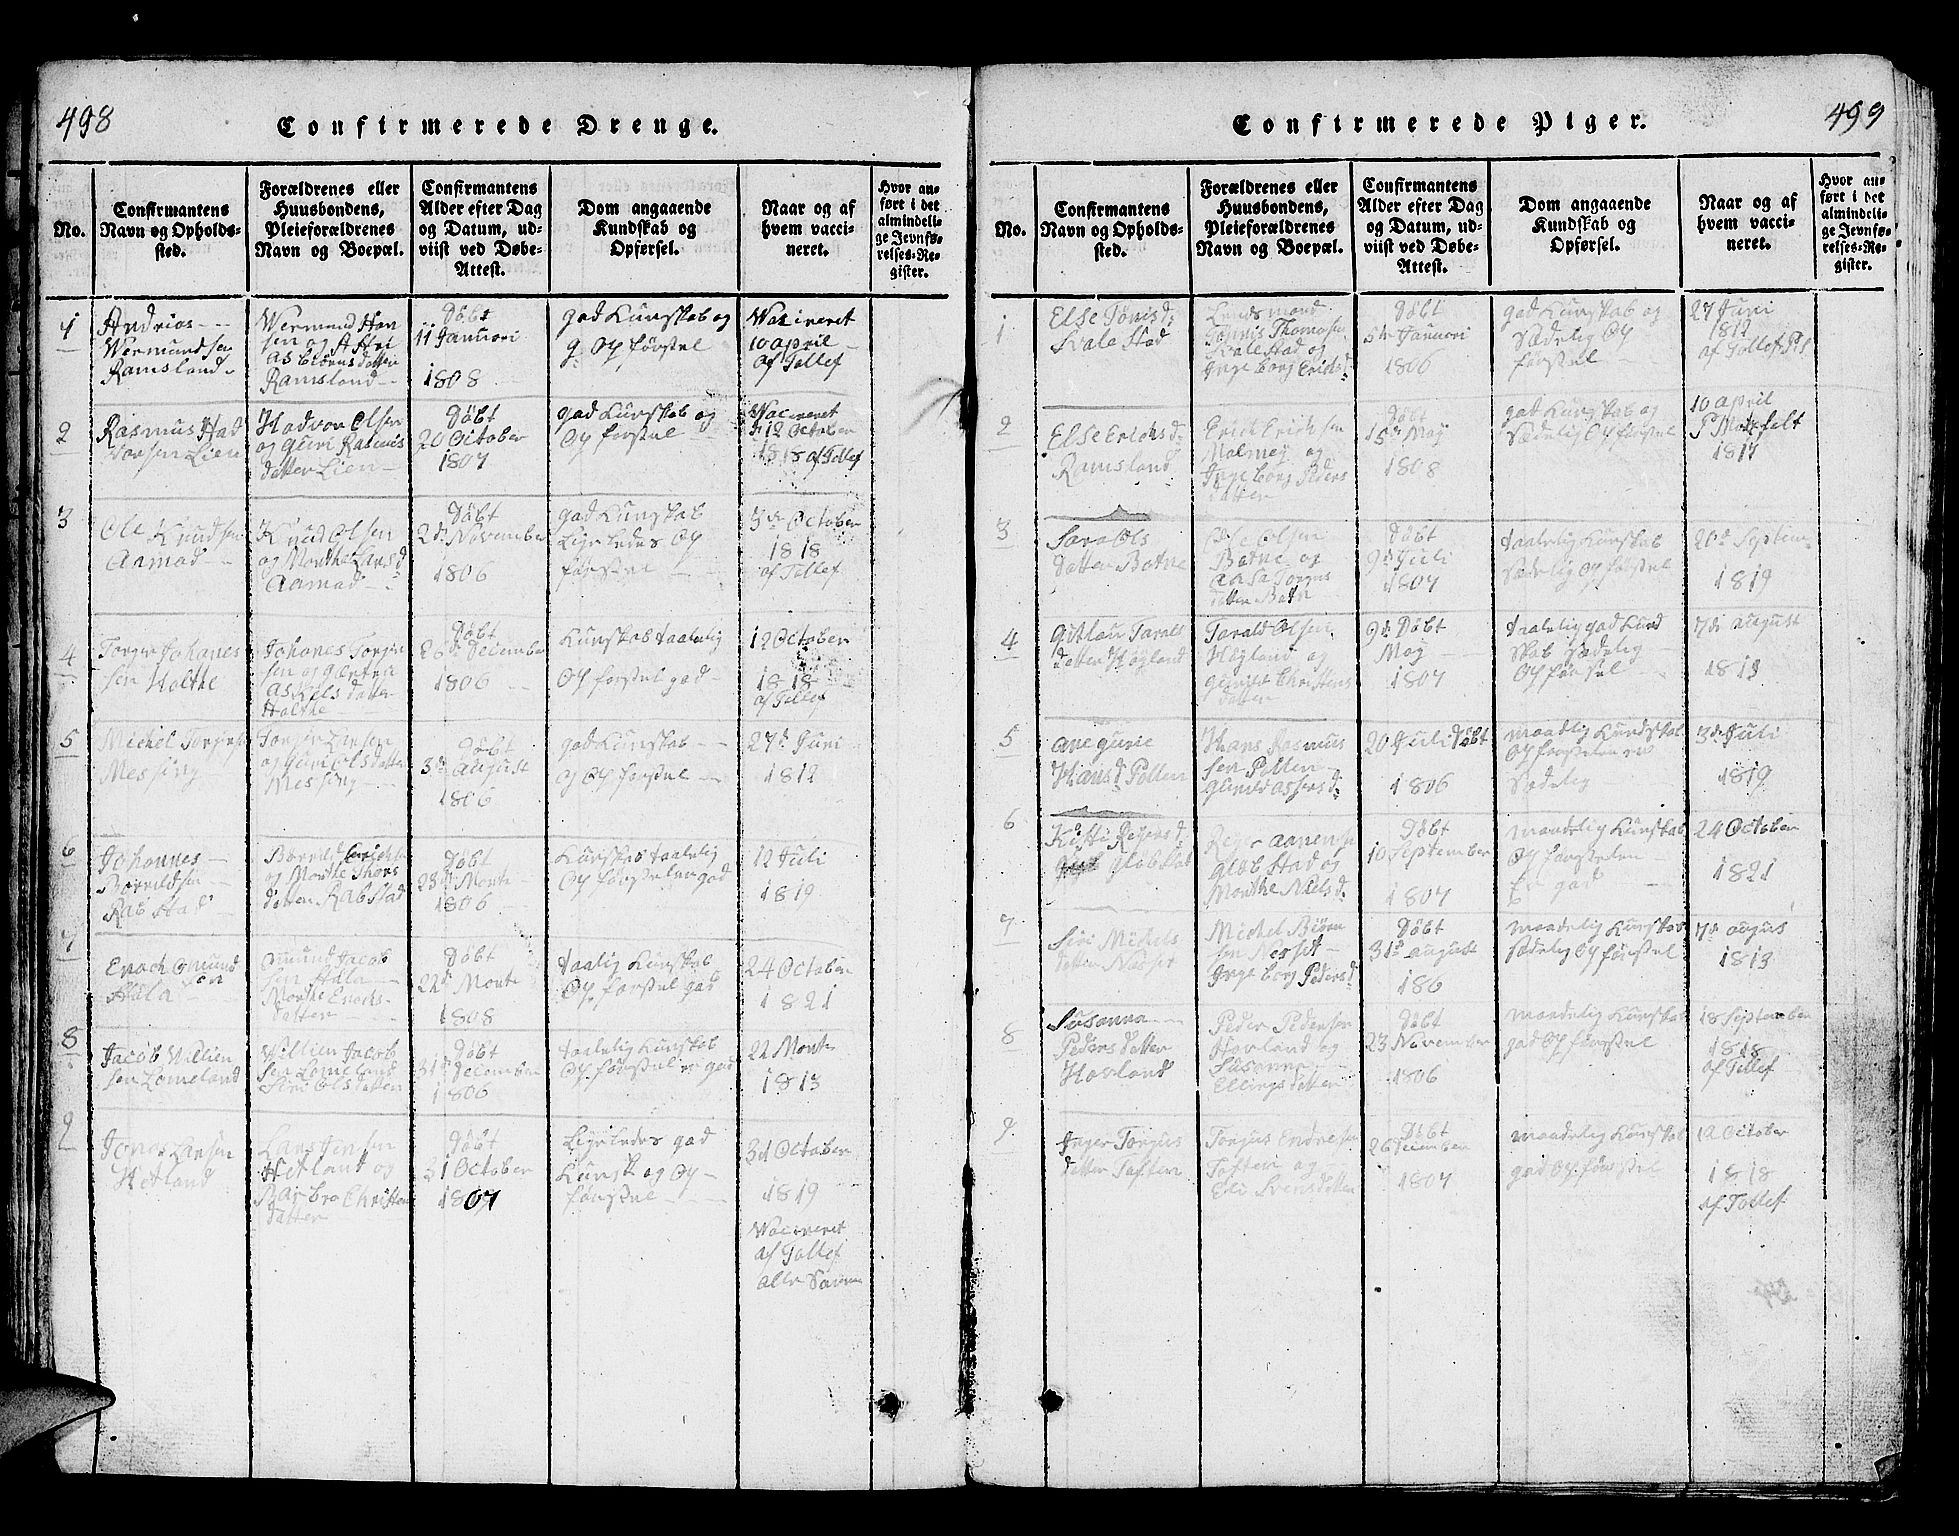 498
Confirmerede Drenge.
No.
Confirmantens
Navn og Opholds-
sted.
Forældrenes eller
Huusbondens,
Pleieforældrenes
Navn og Boepæl.
Confirmantens
Alder efter Dag
og Datum, ud-
viist ved Døbe-
Attest.
Dom angaaende
Kundskab og
Opførsel.
Naar og af
hvem vacci-
neret.
Hvor an-
ført i det
almindeli-
ge Jevnfø-
relses-Re-
gister.
1
Andrias
Wermundsen
Ramsland
Wermund Han
sen og
as biørns datter
Ramsland
Døbt
11 Januari
1808
god Kunskab og
g. Opførsel
Wacineret
10 april
af Tollef
2
Rasmus Had
vorsen Lien
Hadvor Olsen
og Guri Rasmus
datter Lien
Døbt
20 October
1807
god Kunskab og
Opførsel
Wacineret
12 October
1818 af Tollef
3
Ole Knudsen
Aamod
Knud Olsen
og Monthe Larsd.
Aamod
Døbt
2d November
1806
god Kunskab
Ligeledes Op
førsel
3d October
1818
af Tollef
4
Torger Johanes
sen Holthe
Johanes Torger
sen og
Askils datter
Holthe
Døbt
26d December
1806
Kunskab taalelig
Opførsel god
12 October
1818
af Tollef
5
Michel Torgersen
Messing
Torger Larsen
og Guri Olsdatter
Messing
Døbt
3d august
1806
god Kunskab
og Opførsel
27d Juni
1812
6
Johannes
Borrildsen
Rabstad
Borrild
og Monthe Thors
datter Rabstad
Døbt
23d Monte
1806
Kunskab taalelig
Opførselen god
12 Juli
1819
7
Enoch Omund
sen
Hala
Omund Jacob
sen Hala
Monthe Enochs
datter
Døbt
22d Monte
1808
taalig Kunskab
Opførsel god
24 October
1821
8
Jacob Willien
sen Lomeland
Willien Jacob
sen Lomeland
Siri Olsdatter
Døbt
31d December
1806
taalelig Kunskab
Opførsel er god
22 Monte
1813
9
Jonas Larsen
Hetland
Lars Jensen
Hetland og
Barbro Christen
datter
Døbt
31 October
1807
Ligeledes god
Kunsk og Op
førsel
31 October
1819
Wacineret
af Tollef
alle Samen
499
Confirmerede Piger.
No.
Confirmantens
Navn og Opholds-
sted.
Forældrenes eller
Huusbondens,
Pleieforældrenes
Navn og Boepæl.
Confirmantens
Alder efter Dag
og Datum, ud-
viist ved Døbe-
Attest.
Dom angaaende
Kundskab og
Opførsel.
Naar og af
hvem vacci-
neret.
Hvor an-
ført i det
almindeli-
ge Jevnfø-
relses-Re-
gister.
1
Else Tønisd:
Svalestad
Lendsmand
Tønnis Thomasen
Svalestad og
Ingeborg Ericksd
Døbt
5te Januari
1806
god Kunskab og
Sædelig Op
førsel
27 Juni
1812
af Tollef
2
Else Ericksd:
Ramsland
Erick Ericksen
Malmey og
Ingeborg Peders
datter
Døbt
15de May
1808
god Kunskab og
Sædelig Opførsel
10 april
1817
3
Sara Ols
datter Botne
Ole Olsen
Botne og
Torgus
datter Botn
Døbt
9d Juli
1807
taalelig Kunskab
Sædelig Opførsel
20d Septem
1819
4
Taralds
datter Høgland
Tarald Olsen
Høgland og
Christens
datter
9d Døbt
May
1807
taalelig god Kund
skab Sædelig
Opførsel
7di august
1813
5
ane gurie
Hansd Polten
Hans Rasmus
sen Polten
Gunild assersd:
20 Juli Døbt
1806
maadelig Kundskab
Opførselen er
Sædelig
3d Juli
1819
6
Kisti Regersd.
Gløbstad
Reger aanensen
Gløbstad og
Monthe Nielsd.
Døbt
10 September
1807
maadelig Kunskab
Opførselen
Er god
24 October
1821
7
Siri Michels
datter Nesset
Michel Biørn
sen Nesset
Ingeborg Pedersd
Døbt
31d august
186
maadelig Kunskab
Sædelig Opførsel
7d augus
1813
8
Susanna
Peders datter
Hovland
Peder Pedersen
Hovland og
Susanna
Ellingsdatter
Døbt
23 November
1806
maadelig Kunskab
god Opførsel
18 September
1818
af Tollef
9
Inger Torgus
datter Toften
Torgus Endresen
Toften og
Eli Svensdatter
Døbt
26 December
1807
maadelig Kunskab
god Opførsel
12 October
1818
af Tollef